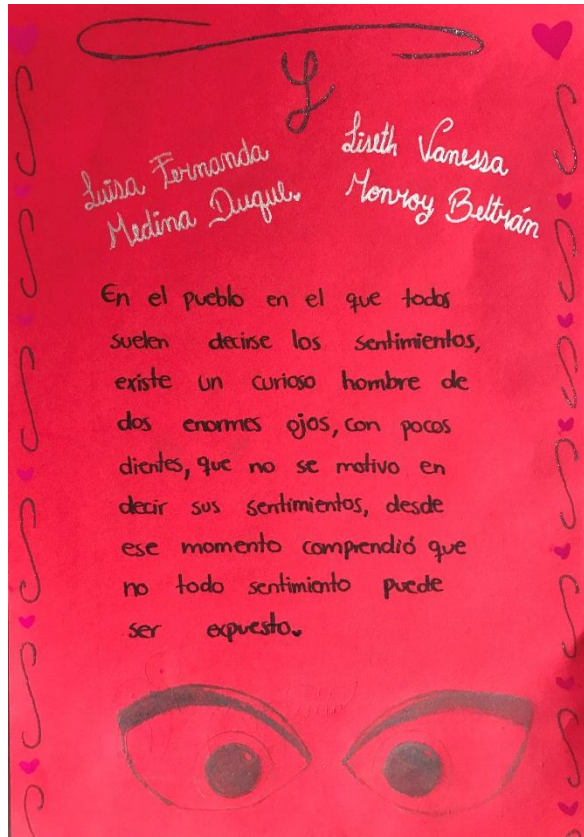 Y
Luisa Fernanda
Medina Duque.
Liseth Vanessa
Monroy Beltrán
En el pueblo en el que todos
suelen decirse los sentimientos,
existe un curioso hombre de
dos enormes ojos, con pocos
dientes, que no se motivo en
decir sus sentimientos, desde
ese momento comprendió que
no todo sentimiento puede
ser expuesto.